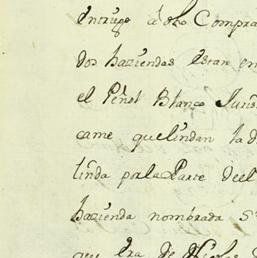 entrego á dho Compra
dos haziendas estan en
el Peñol Blanco Juris
came que lindan la d
linda por la Parte de el
hazienda nombrada S
que era de Nicolas